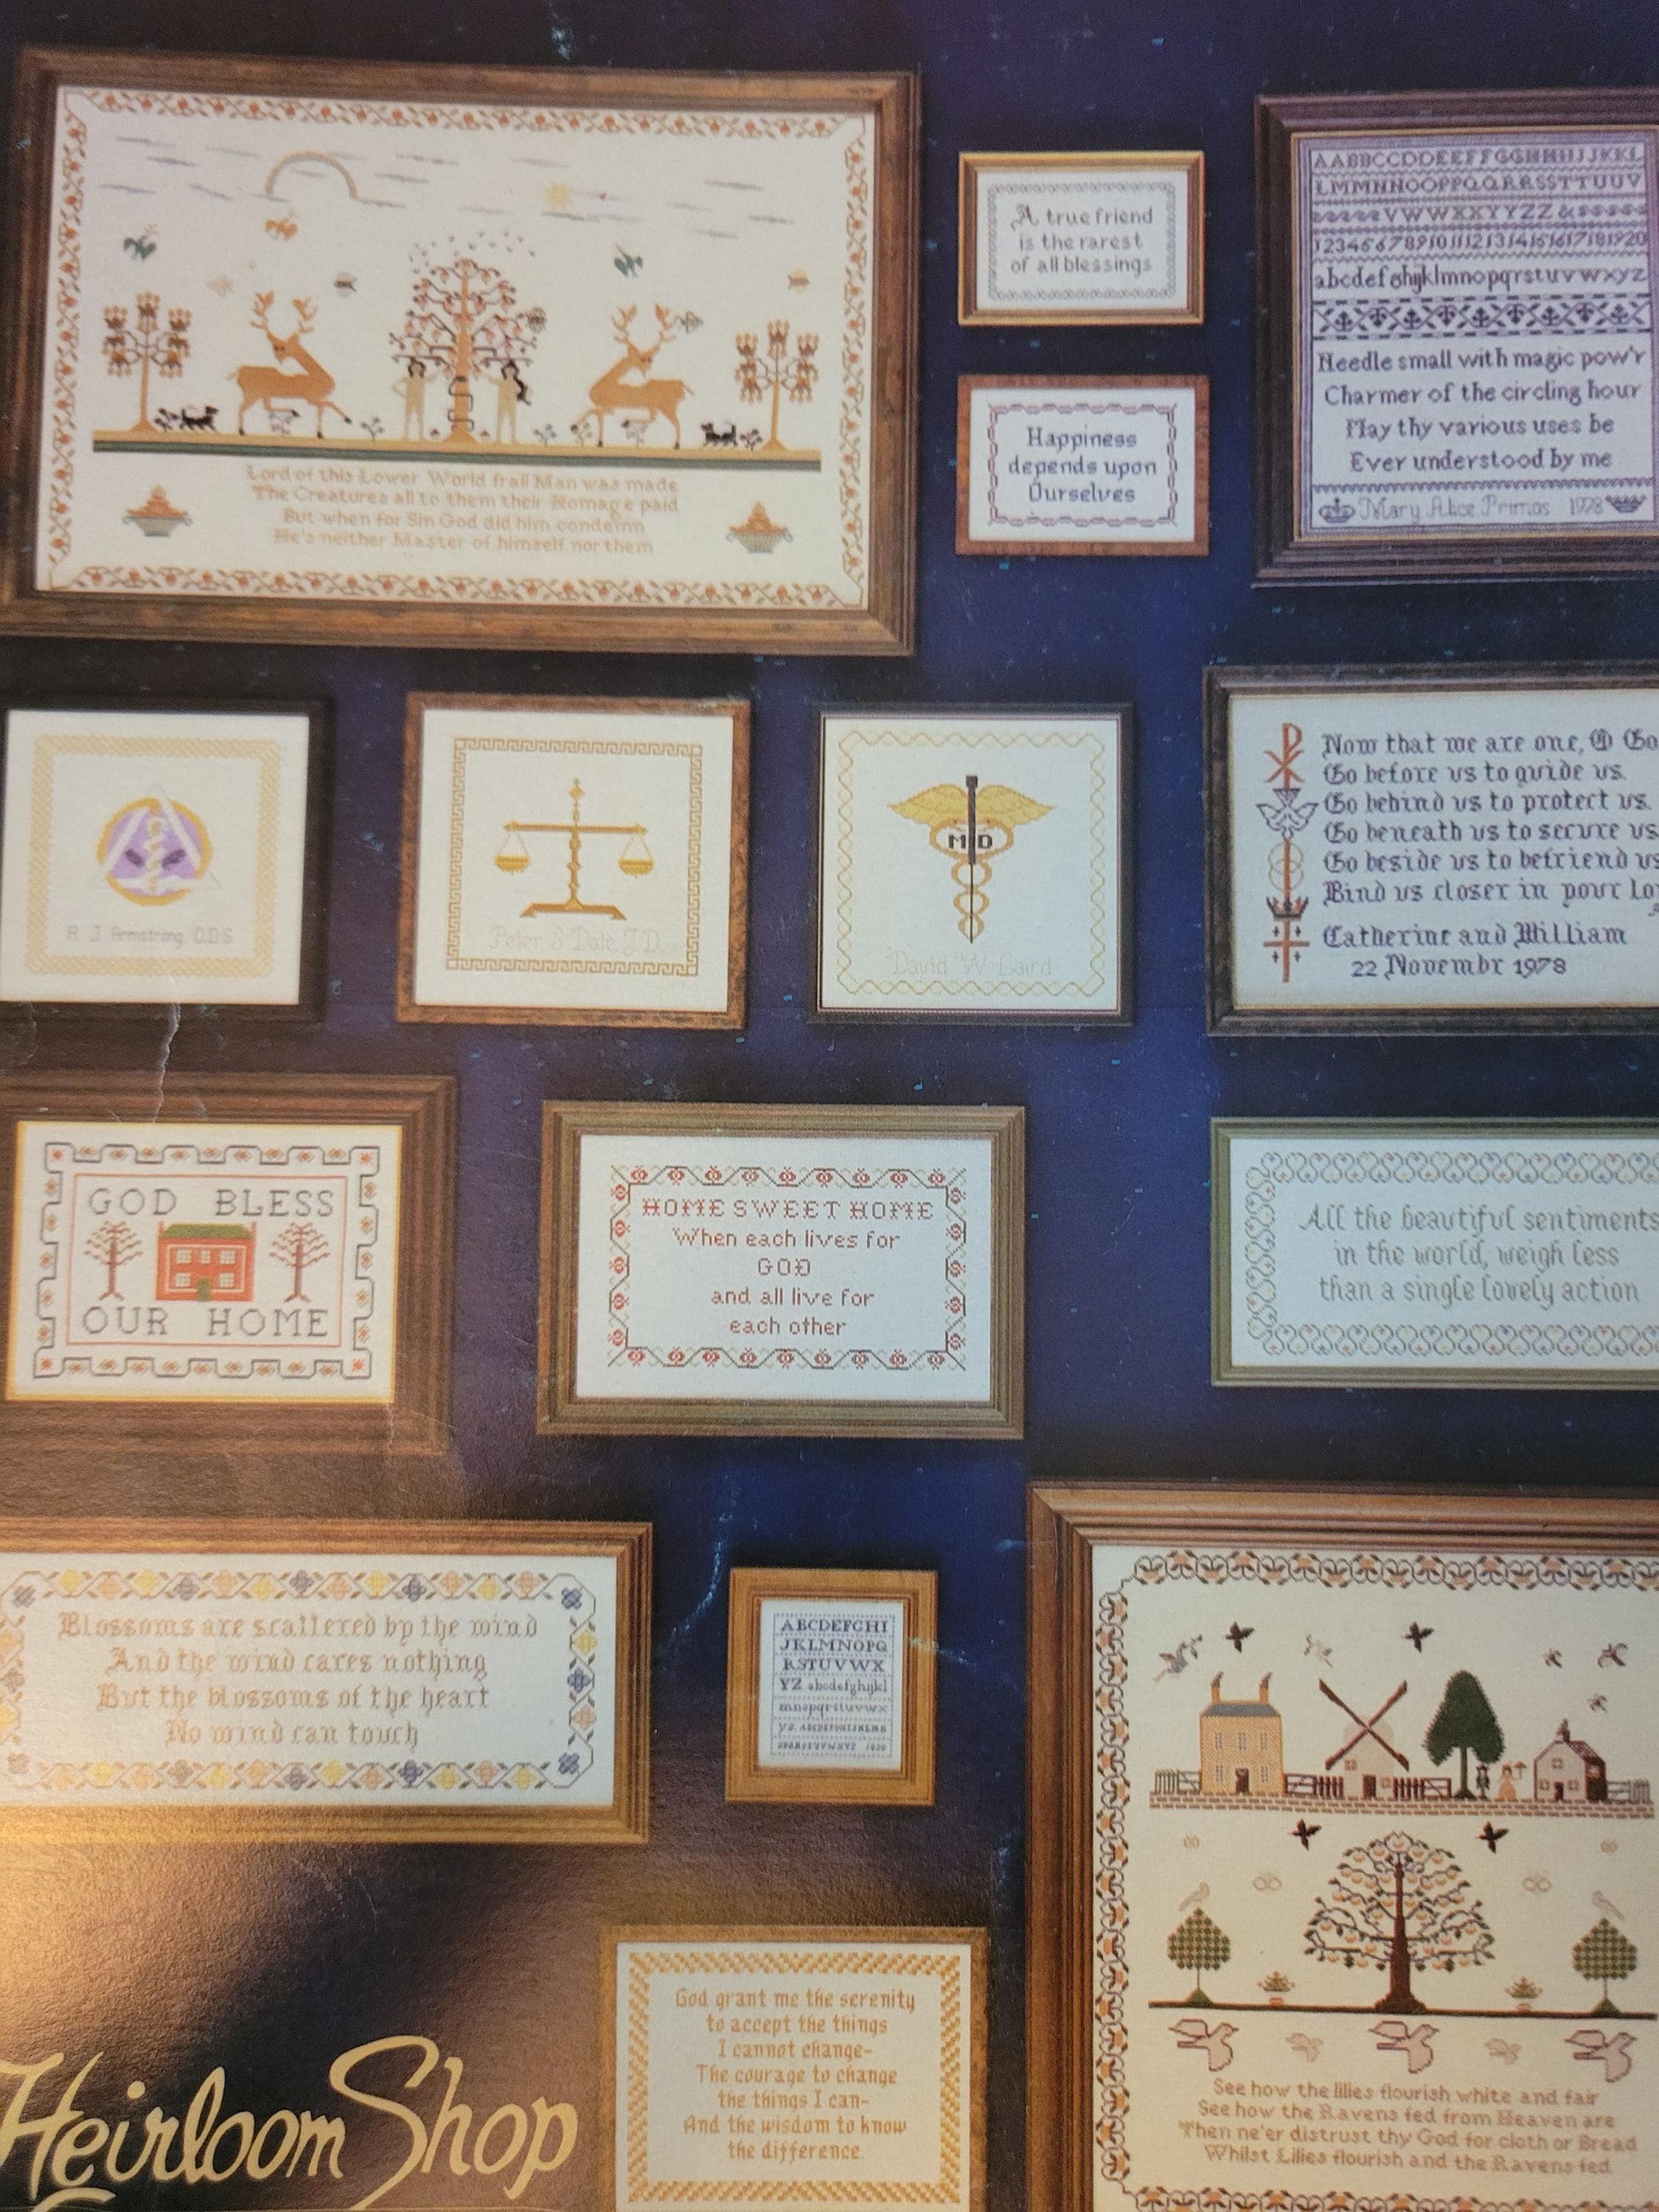 Lord of this Lower World frail Man was made
The Creatures all to them their Homage paid
But when for Sin God did him condemn
He's neither Master of himself nor them
A true friend
is the rarest
of all blessings
Happiness
depends upon
Ourselves
AABBCCDDEEFFGGHHIIJJKKL
LMMNNOOPPQQRRSSTTUUV
VWWXXYYZZ&
1234567891011121314151617181920
abcdefghijklmnopqrstuvwxyz
Needle small with magic pow'r
Charmer of the circling hour
May thy various uses be
Ever understood by me
Mary Alice Primos 1978
R. J. Armstrong, D.D.S.
Peter S. Dale, J.D.
MD
David W. Laird
Now that we are one, O Go
Go before us to guide us.
Go behind us to protect us.
Go beneath us to secure us
Go beside us to befriend us
Bind us closer in your Lo
Catherine and William
22 Novembr 1978
GOD BLESS
OUR HOME
HOME SWEET HOME
When each lives for
GOD
and all live for
each other
All the beautiful sentiments
in the world, weigh less
than a single lovely action
Blossoms are scattered by the wind
And the wind cares nothing
But the blossoms of the heart
No wind can touch
ABCDEFGHI
JKLMNOPQ
RSTUVWX
YZ abcdefghijkl
mnopqrstuvwx
yz
God grant me the serenity
to accept the things
I cannot change-
The courage to change
the things I can-
And the wisdom to know
the difference.
See how the lilies flourish white and fair
See how the Ravens fed from Heaven are
Then ne'er distrust thy God for cloth or Bread
Whilst Lilies flourish and the Ravens fed
Heirloom Shop